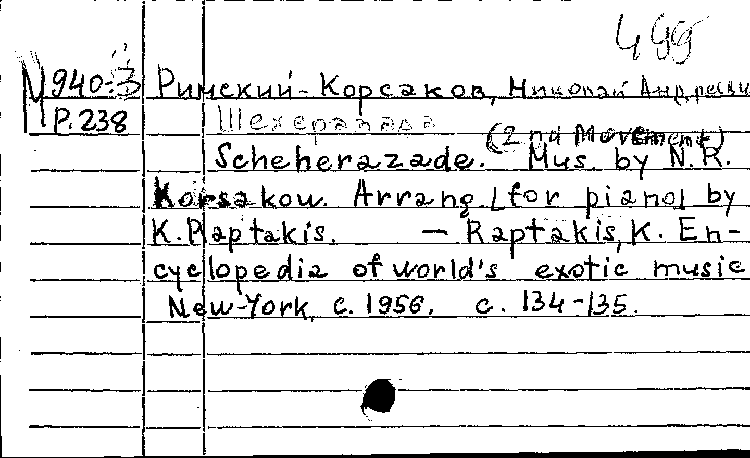 499
М940-3 Римский-Корсаков, Николай Андреевич
Р.238 Шехеразада
(2nd Movement)
Scheherazade. Mus by N.R.
Korsakow. Arrang. [for piano] by
K.Raptakis. — Raptakis, K. En-
cyclopedia of world's exotic music
New-York, c. 1956. c. 134-135.